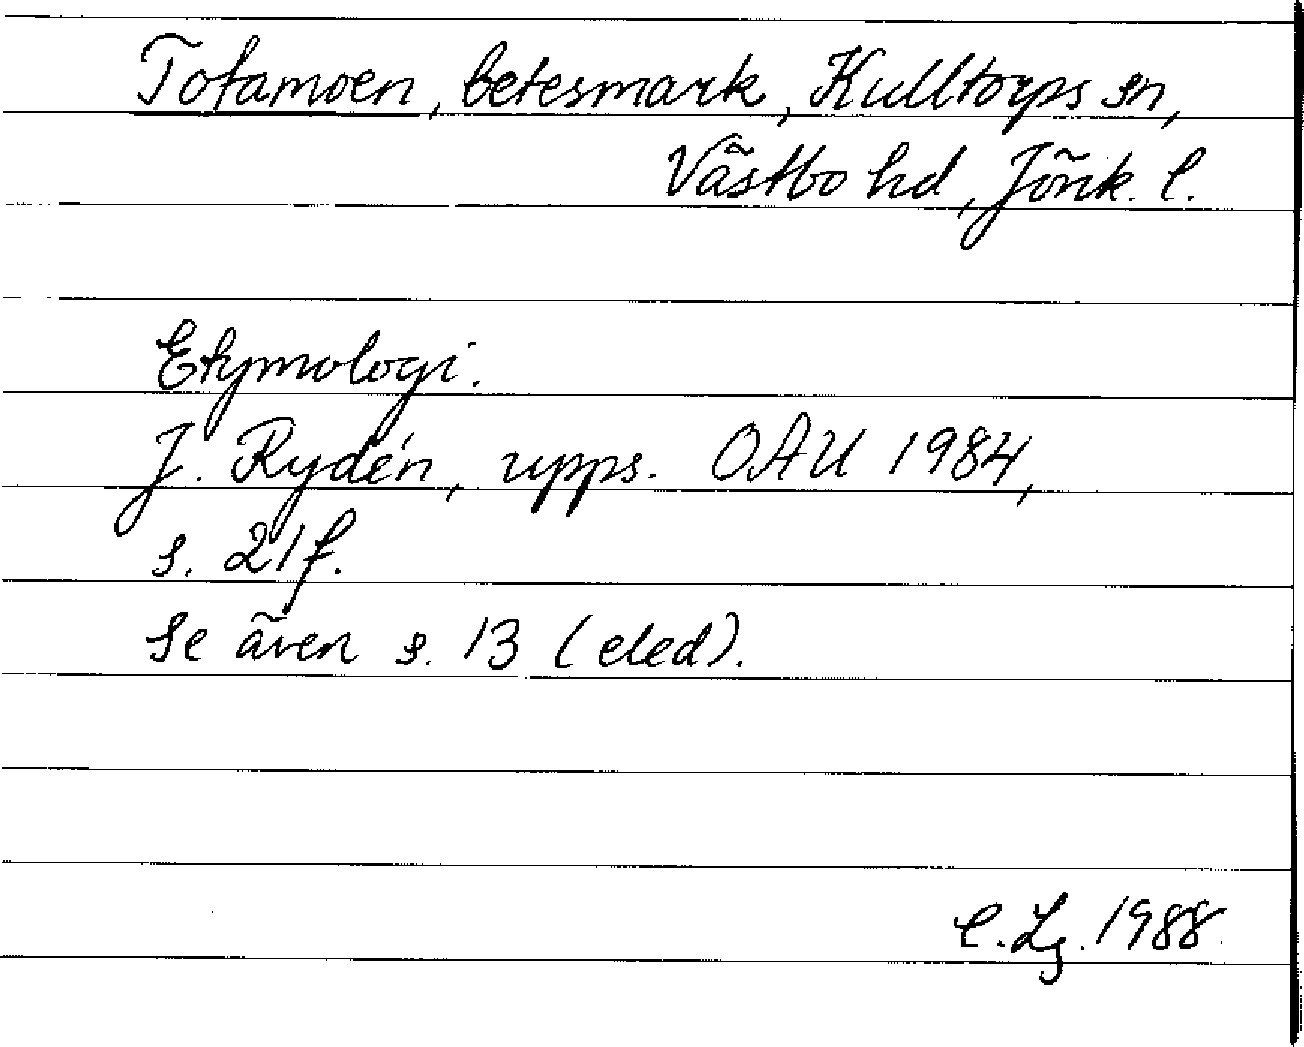 Tofamoen, betesmark, Kulltorps sn,
Västbo hd, Jönk. l.
Etymologi.
J. Rydén, upps. OAU 1984,
s. 21 f.
Se även s. 13 (eled).
C. Lg. 1988